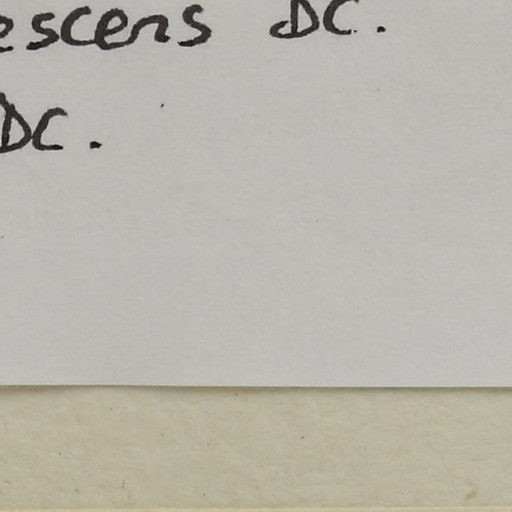 escens DC.
DC.